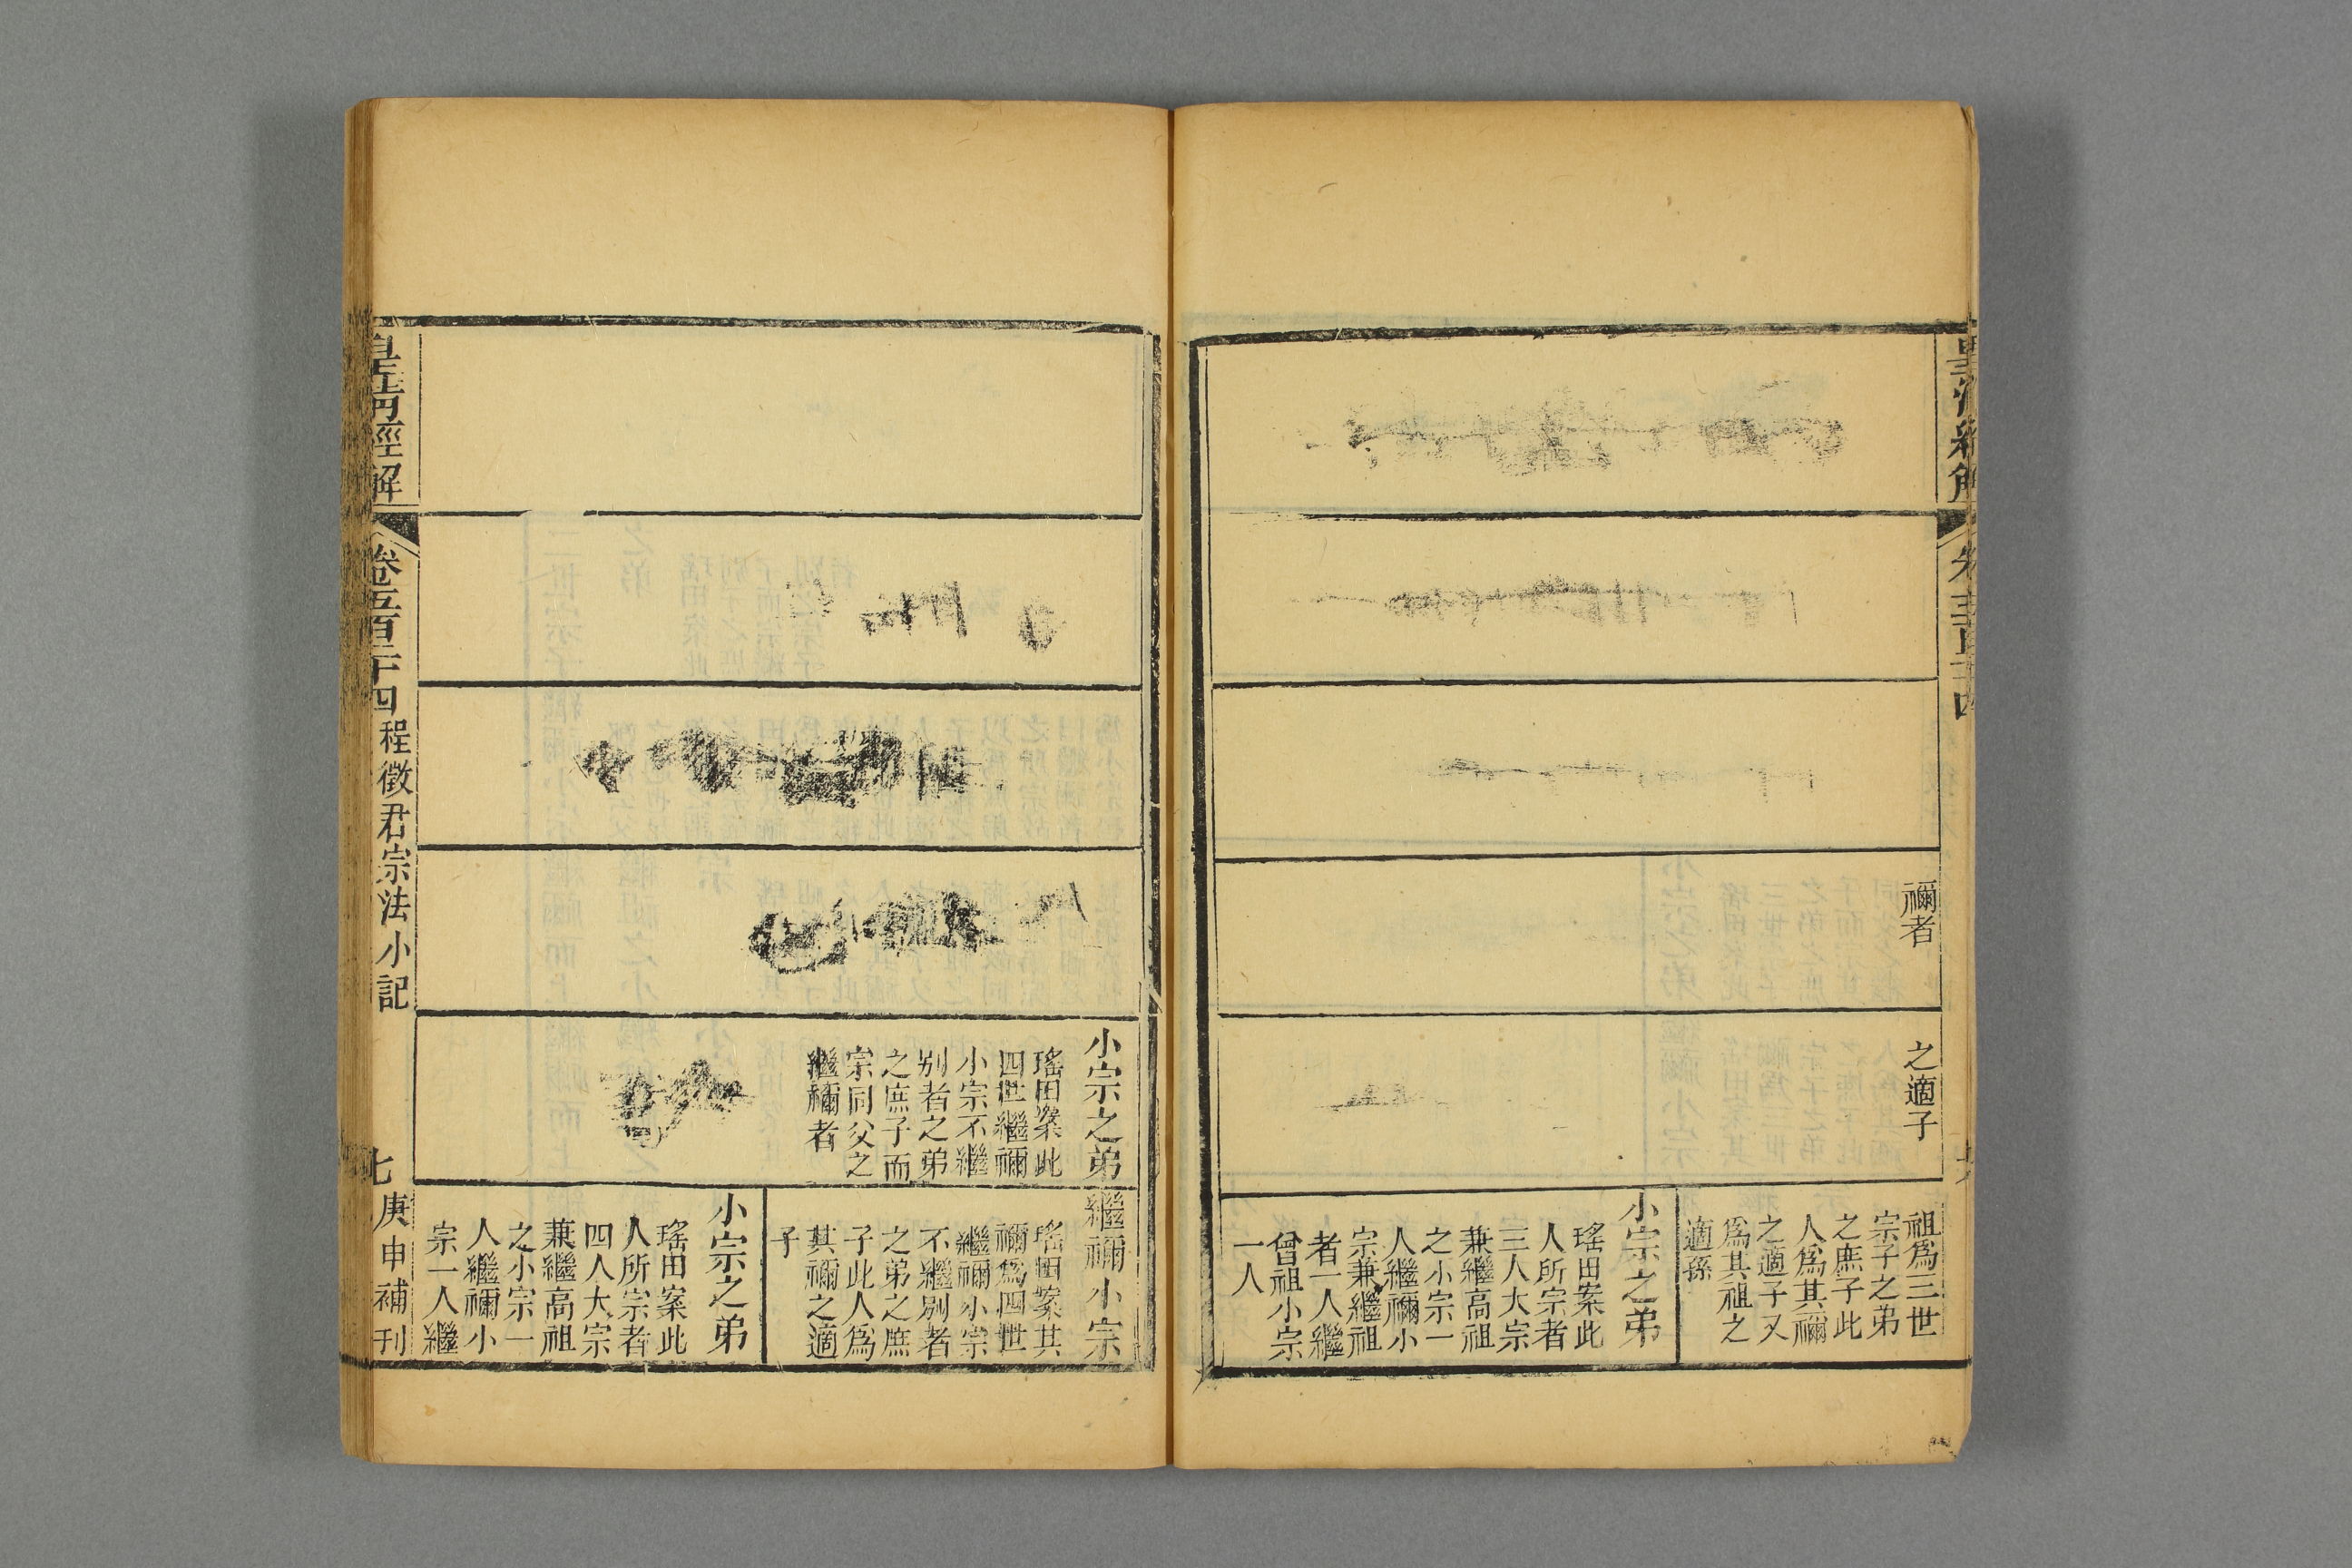 禰者
之適子
祖爲三世
宗子之弟
之庶子此
人爲其禰
之適子又
爲其祖之
適孫
小宗之弟
瑤田案此
人所宗者
三人大宗
兼繼高祖
之小宗一
人繼禰小
宗兼繼祖
者一人繼
曾祖小宗
一人
小宗之弟
瑤田案此
四世繼禰
小宗不繼
别者之弟
之庶子而
宗同父之
繼禰者
繼禰小宗
瑤田案其
禰爲四世
繼禰小宗
不繼别者
之弟之庶
子此人爲
其禰之適
子
小宗之弟
瑤田案此
人所宗者
四人大宗
兼繼高祖
之小宗一
人繼禰小
宗一人繼
皇清經解
卷五百二十四
程徵君宗法小記
七
庚申補刊